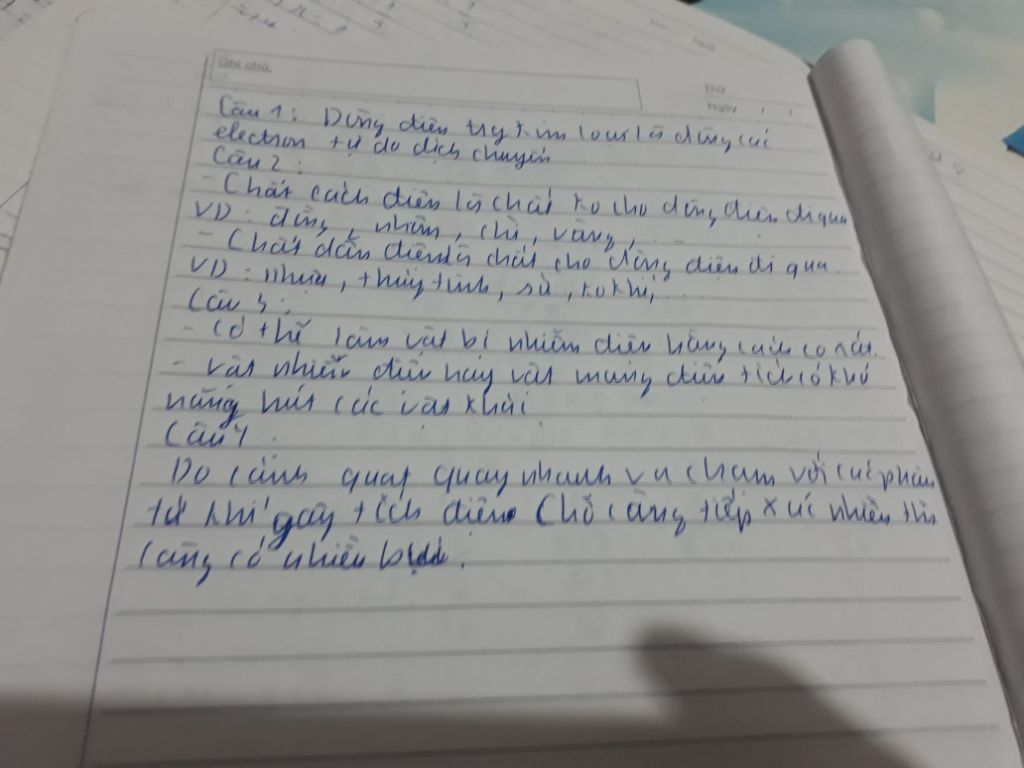 Ghi chú:
Thứ
Ngày / /
Câu 1: Dòng điện trg kim loại là dòng các
electron tự do dịch chuyển
Câu 2:
- Chất cách điện là chất ko cho dòng điện đi qua
VD: đồng, nhôm, chì, vàng, ...
- Chất dẫn điện là chất cho dòng điện đi qua
VD: nhựa, thủy tinh, sứ, ko khí,
Câu 3:
- Có thể làm vật bị nhiễm điện bằng cách cọ xát.
- Vật nhiễm điện hay vật mang điện tích có khả
năng hút các vật khác
Câu 4
Do cánh quạt quay nhanh va chạm với các phân
tử khí gây tích điện. Chỗ càng tiếp xúc nhiều thì
càng có nhiều bụi.